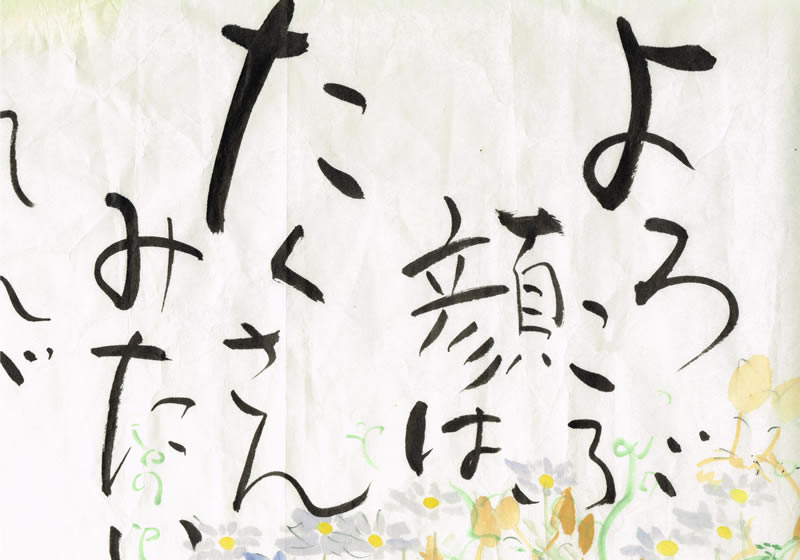 よろこぶ
顔は
たくさん
みたい